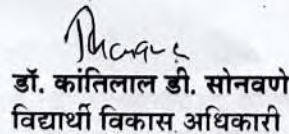 डॉ. कांतिलाल डी. सोनवणे
विद्यार्थी विकास अधिकारी